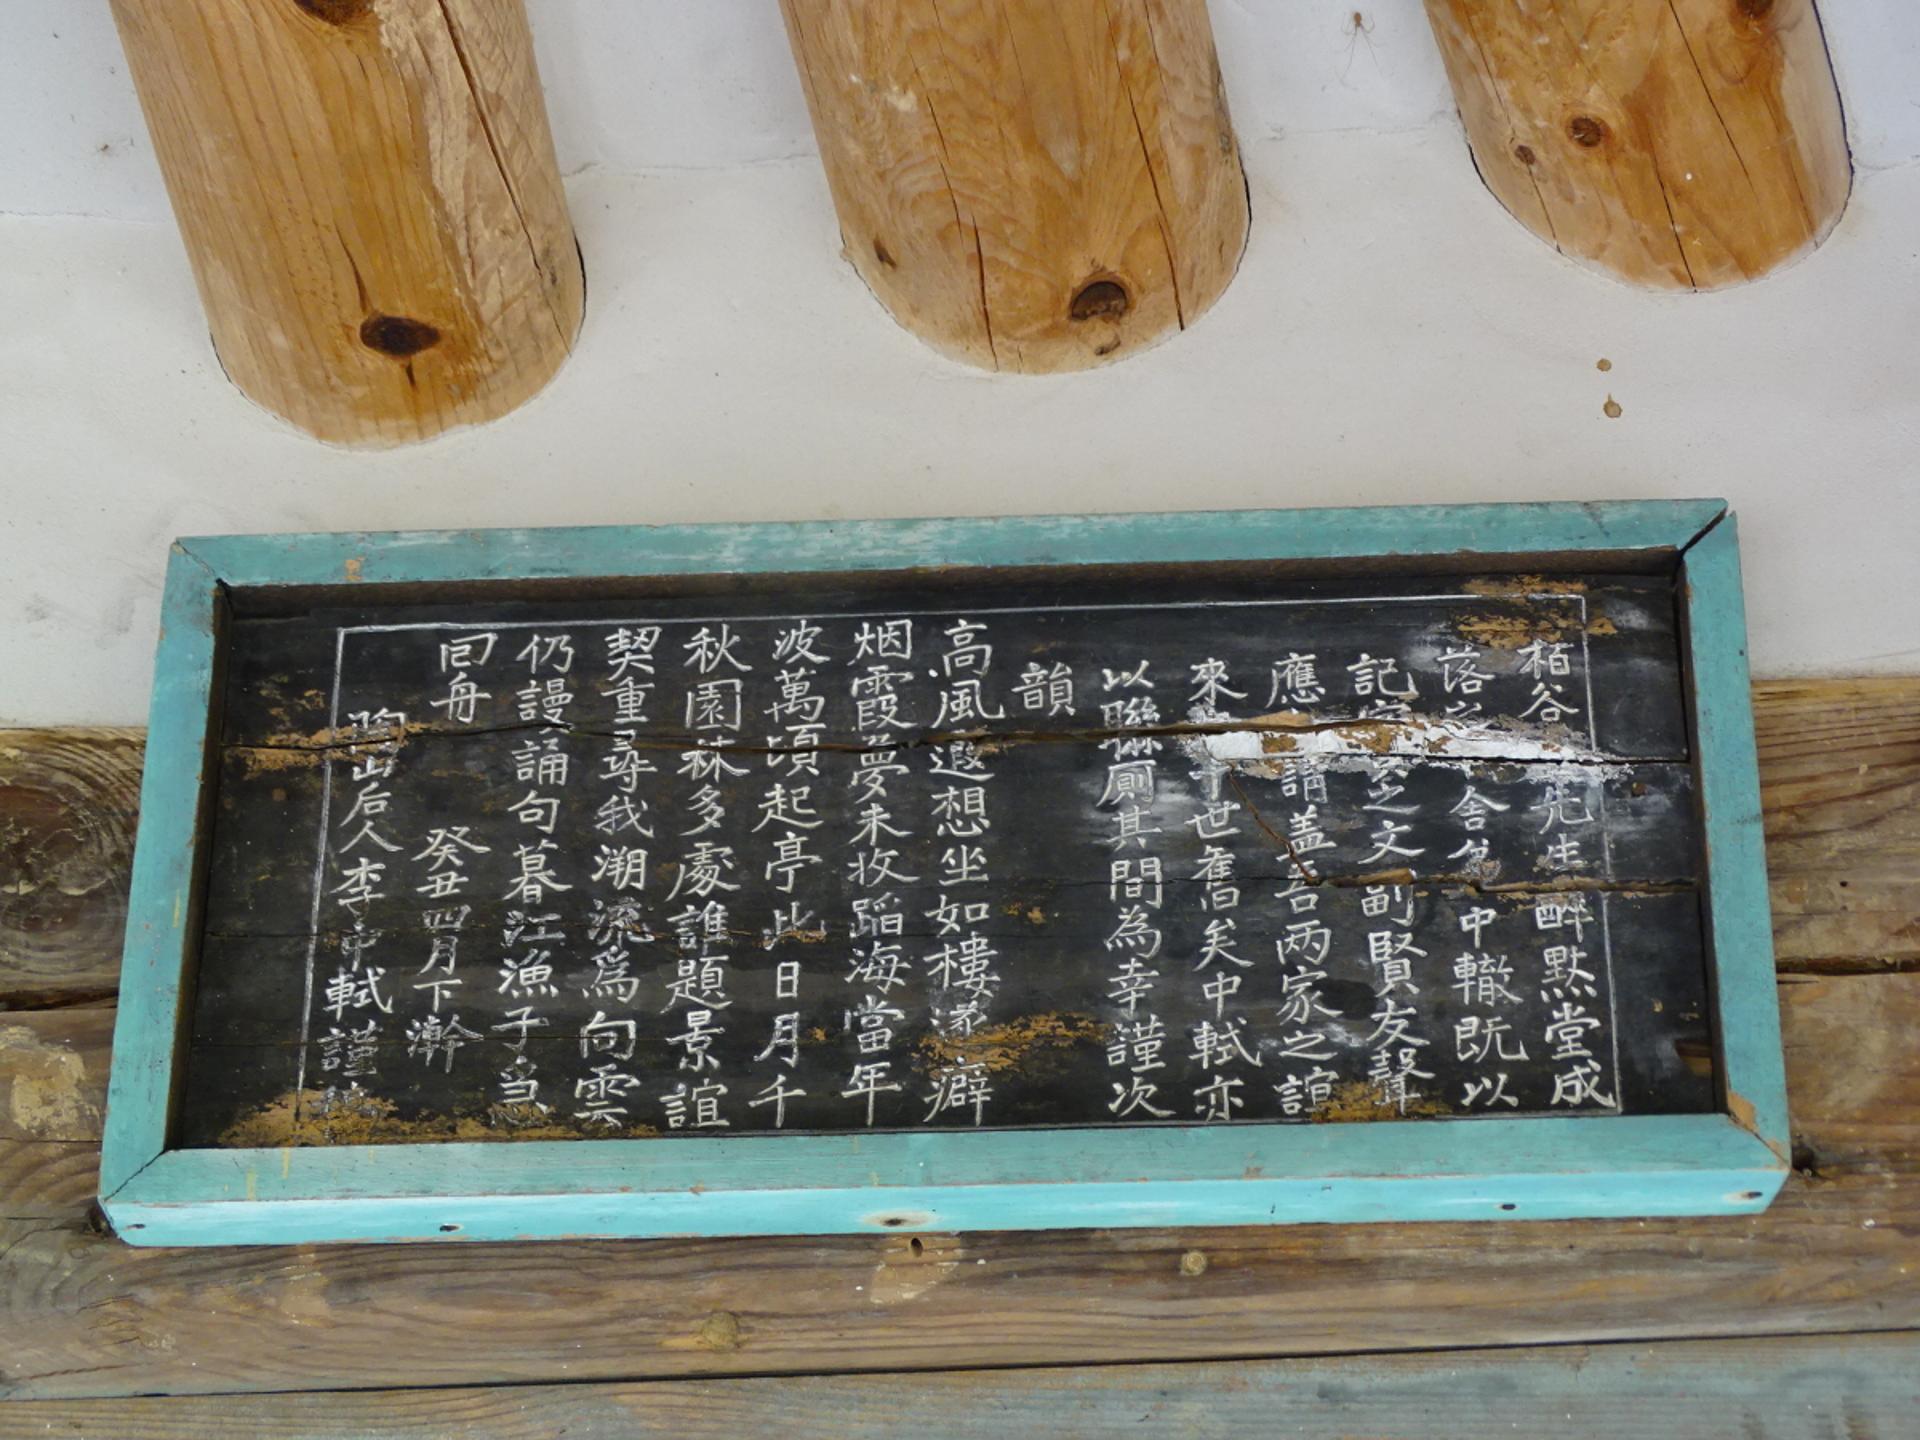 栢谷先生醉默堂成
落之舍中轍既以
記之文副賢友聲
應講盖吾兩家之誼
來世舊矣中軾亦
以聯廁其間為幸謹次
韻
高風遐想坐如樓癖
烟霞夢未收蹈海當年
波萬頃起亭此日月千
秋園林多處誰題景誼
契重尋我溯流爲向雲
仍謾誦句暮江漁子
回舟 癸丑四月下澣
陶山后人李中軾謹